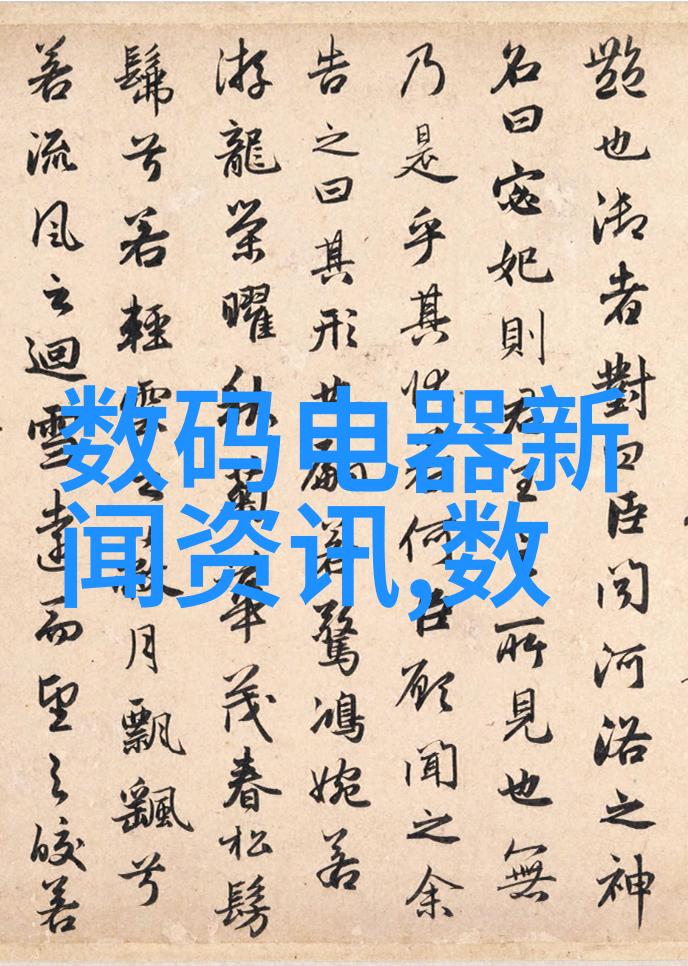 艷也御者對曰臣聞河洛之神
名曰宓妃則君王所見也無
乃是乎其狀若何臣願聞之余
告之曰其形也翩若驚鴻婉若
游龍榮曜秋菊華茂春松髣
髴兮若輕雲之蔽月飄颻兮
若流風之迴雪遠而望之皎若
数码电器新
闻资讯,数